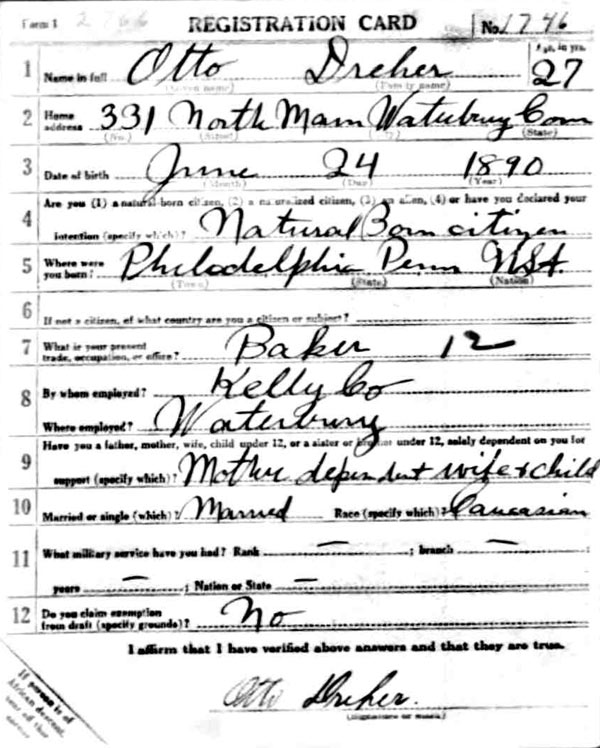 Form 1 2766 REGISTRATION CARD No. 1746
1 Name in full Otto Dreher Age, in yrs. 27
(Given name) (Family name)
2 Home address 331 North Main Waterbury Conn
(No.) (Street) (State)
3 Date of birth June 24 1890
(Month) (Day) (Year)
Are you (1) a natural-born citizen, (2) a naturalized citizen, (3) an alien, (4) or have you declared your
4 intention (specify which)? Natural Born citizen
5 Where were you born? Philadelphia Penn USA.
(Town) (State) (Nation)
6 If not a citizen, of what country are you a citizen or subject?
7 What is your present trade, occupation, or office? Baker 12
8 By whom employed? Kelly Co
Where employed? Waterbury
Have you a father, mother, wife, child under 12, or a sister or brother under 12, solely dependent on you for
9 support (specify which)? Mother dependent wife & child
10 Married or single (which)? Married Race (specify which)? Caucasian
11 What military service have you had? Rank — ; branch —
years — ; Nation or State —
12 Do you claim exemption from draft (specify grounds)? No
I affirm that I have verified above answers and that they are true.
Otto Dreher.
(Signature or mark)
If person is of
African descent,
tear off this
corner